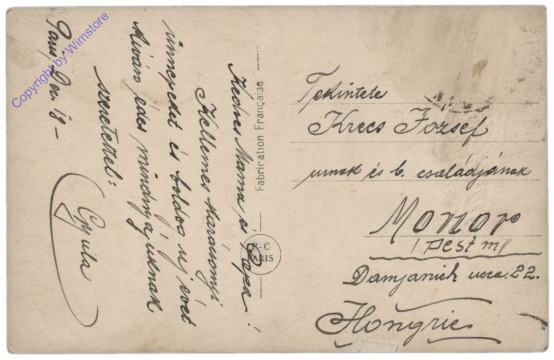 Paris, Dec. 18 –
Kedves Mama és Papa!
Kellemes karácsonyi
ünnepeket és boldog uj évet
kiván édes mindnyájuknak
szeretettel:
Gyula
Fabrication Française
PARIS
Tekintetes
Krecs József
urnak és b. családjának
Monor
pest m
Damjanich ucca. 22.
Hongrie
Copyright by Wimstore